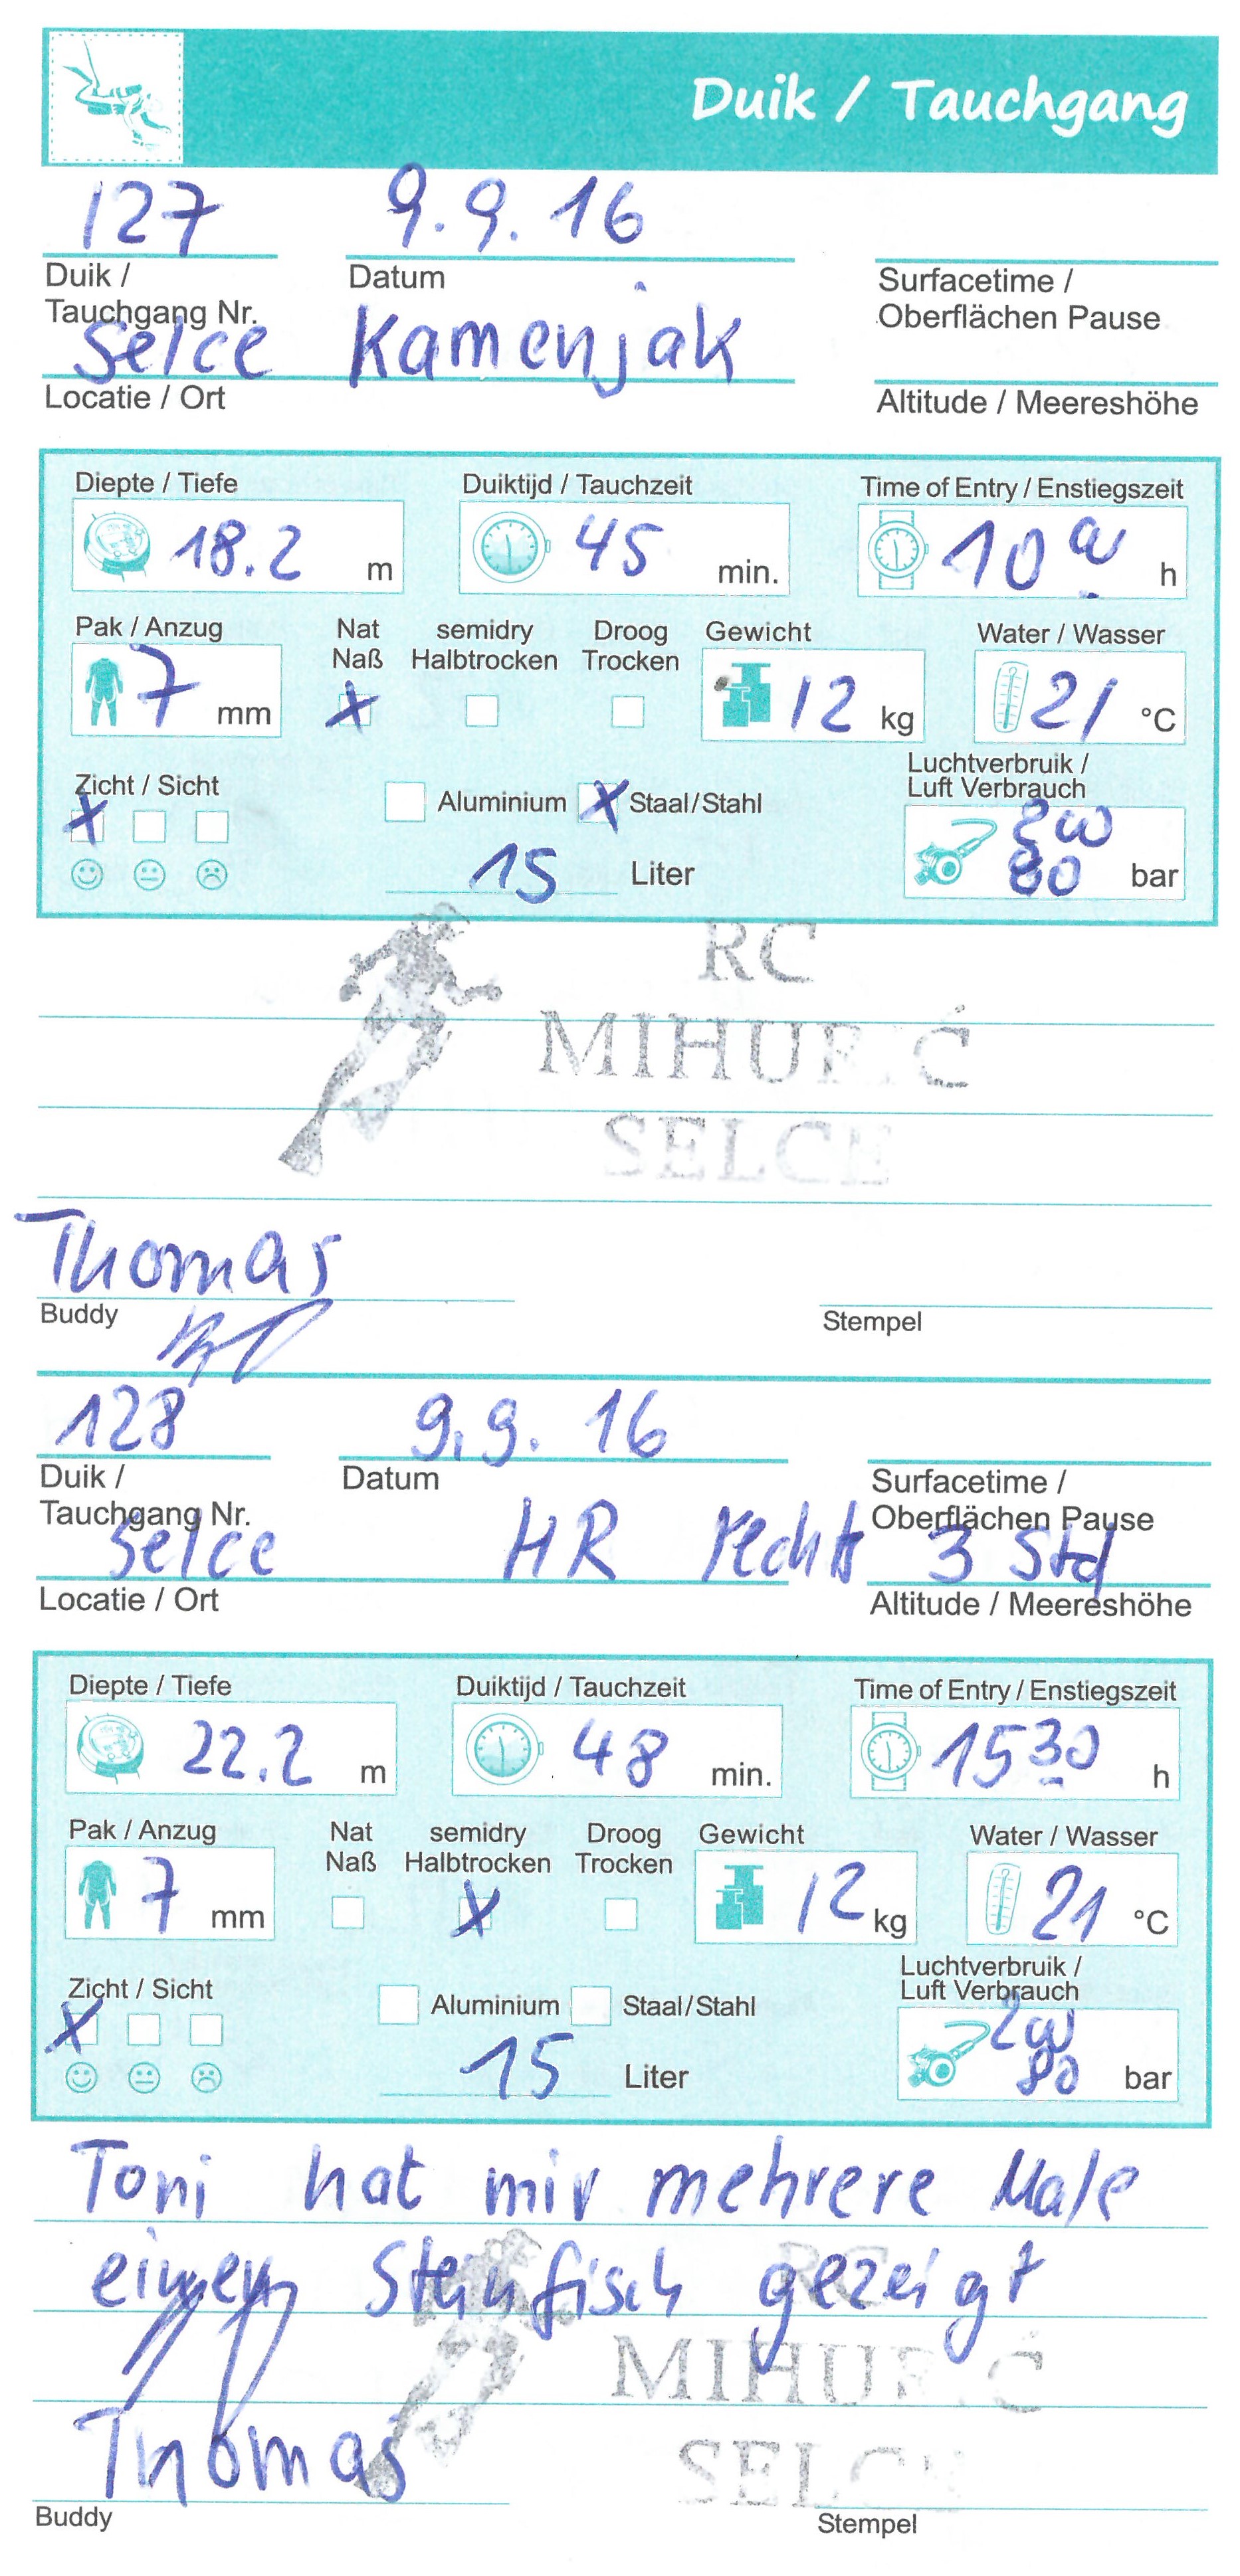 Duik / Tauchgang
127 9.9.16
Duik / Datum Surfacetime /
Tauchgang Nr. Oberflächen Pause
Selce Kamenjak
Locatie / Ort Altitude / Meereshöhe
Diepte / Tiefe Duiktijd / Tauchzeit Time of Entry / Enstiegszeit
18.2 m 45 min. 10 00 h
Pak / Anzug Nat semidry Droog Gewicht Water / Wasser
Naß Halbtrocken Trocken
7 mm X 12 kg 21 °C
Luchtverbruik /
Zicht / Sicht Luft Verbrauch
X Aluminium X Staal/Stahl 200
15 Liter 80 bar
RC
MIHU C
SELCE
Thomas
Buddy Stempel
128 9.9.16
Duik / Datum Surfacetime /
Tauchgang Nr. Oberflächen Pause
Selce HR rechts 3 Std
Locatie / Ort Altitude / Meereshöhe
Diepte / Tiefe Duiktijd / Tauchzeit Time of Entry / Enstiegszeit
22.2 m 48 min. 15 30 h
Pak / Anzug Nat semidry Droog Gewicht Water / Wasser
Naß Halbtrocken Trocken
7 mm X 12 kg 21 °C
Luchtverbruik /
Zicht / Sicht Luft Verbrauch
X Aluminium Staal/Stahl 200
15 Liter 80 bar
Toni hat mir mehrere Male
einen Steinfisch gezeigt
RC
MIHU C
SELCE
Thomas
Buddy Stempel